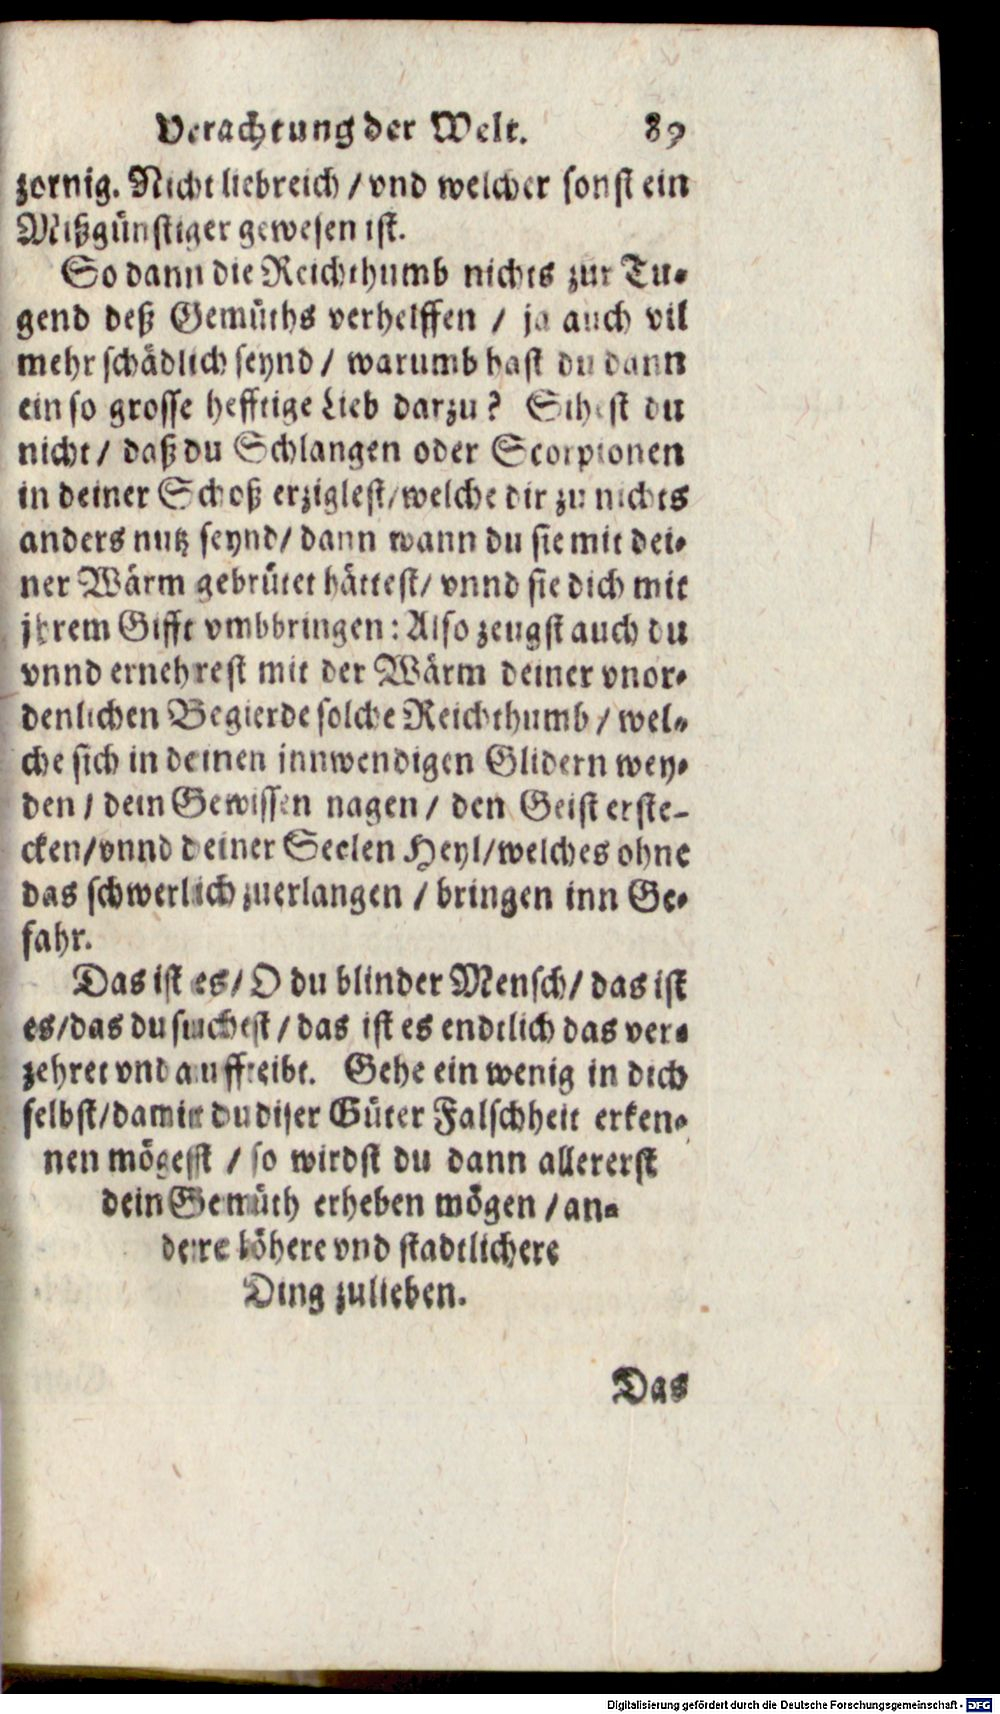 Verachtung der Welt. 89
zornig. Nicht liebreich / vnd welcher sonst ein
Mißgünstiger gewesen ist.
So dann die Reichthumb nichts zur Tu-
gend deß Gemüths verhelffen / ja auch vil
mehr schädlich seynd / warumb hast du dann
ein so grosse hefftige Lieb darzu? Sihest du
nicht / daß du Schlangen oder Scorpionen
in deiner Schoß erziglest / welche dir zu nichts
anders nutz seynd / dann wann du sie mit dei-
ner Wärm gebrütet hättest / vnnd sie dich mit
jhrem Gifft vmbbringen: Also zeugst auch du
vnnd ernehrest mit der Wärm deiner vnor-
denlichen Begierde solche Reichthumb / wel-
che sich in deinen innwendigen Glidern wey-
den / dein Gewissen nagen / den Geist erste-
cken / vnnd deiner Seelen Heyl / welches ohne
das schwerlich zuerlangen / bringen inn Ge-
fahr.
Das ist es / O du blinder Mensch / das ist
es / das du suchest / das ist es endtlich das ver-
zehret vnd auffreibt. Gehe ein wenig in dich
selbst / damit du diser Güter Falschheit erken-
nen mögesst / so wirdst du dann allererst
dein Gemüth erheben mögen / an-
dere höhere vnd stadtlichere
Ding zulieben.
Das
Digitalisierung gefördert durch die Deutsche Forschungsgemeinschaft - DFG